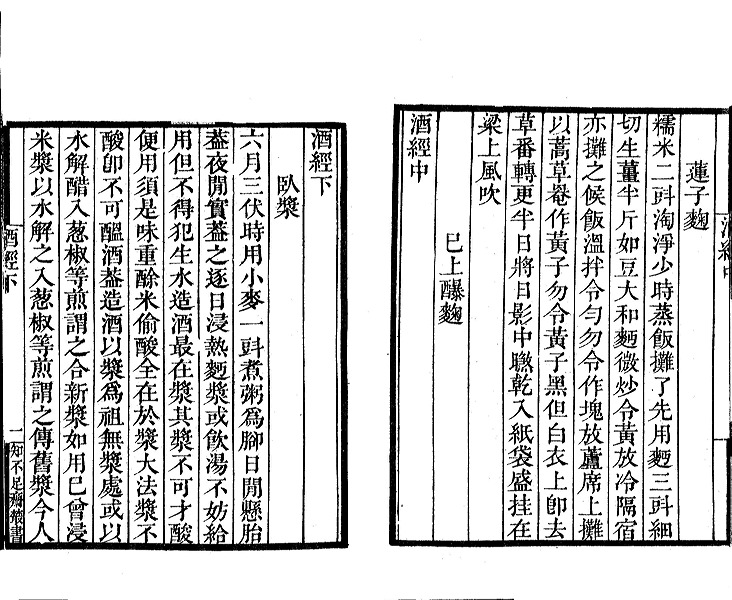 酒經中
蓮子麴
糯米二㪷淘淨少時蒸飯攤了先用麪三㪷細
切生薑半斤如豆大和麪微炒令黃放冷隔宿
亦攤之候飯溫拌令勻勿令作塊放蘆席上攤
以蒿草罨作黃子勿令黃子黑但白衣上卽去
草番轉更半日將日影中曬乾入紙袋盛挂在
梁上風吹
已上醵麴
酒經中
酒經下
臥漿
六月三伏時用小麥一㪷煮粥爲腳日閒懸胎
葢夜閒實葢之逐日浸熱麪漿或飲湯不妨給
用但不得犯生水造酒最在漿其漿不可才酸
便用須是味重酴米偷酸全在於漿大法漿不
酸卽不可醞酒葢造酒以漿爲祖無漿處或以
水解醋入葱椒等煎謂之合新漿如用已曾浸
米漿以水解之入葱椒等煎謂之傳舊漿今人
酒經下
一
知不足齋叢書